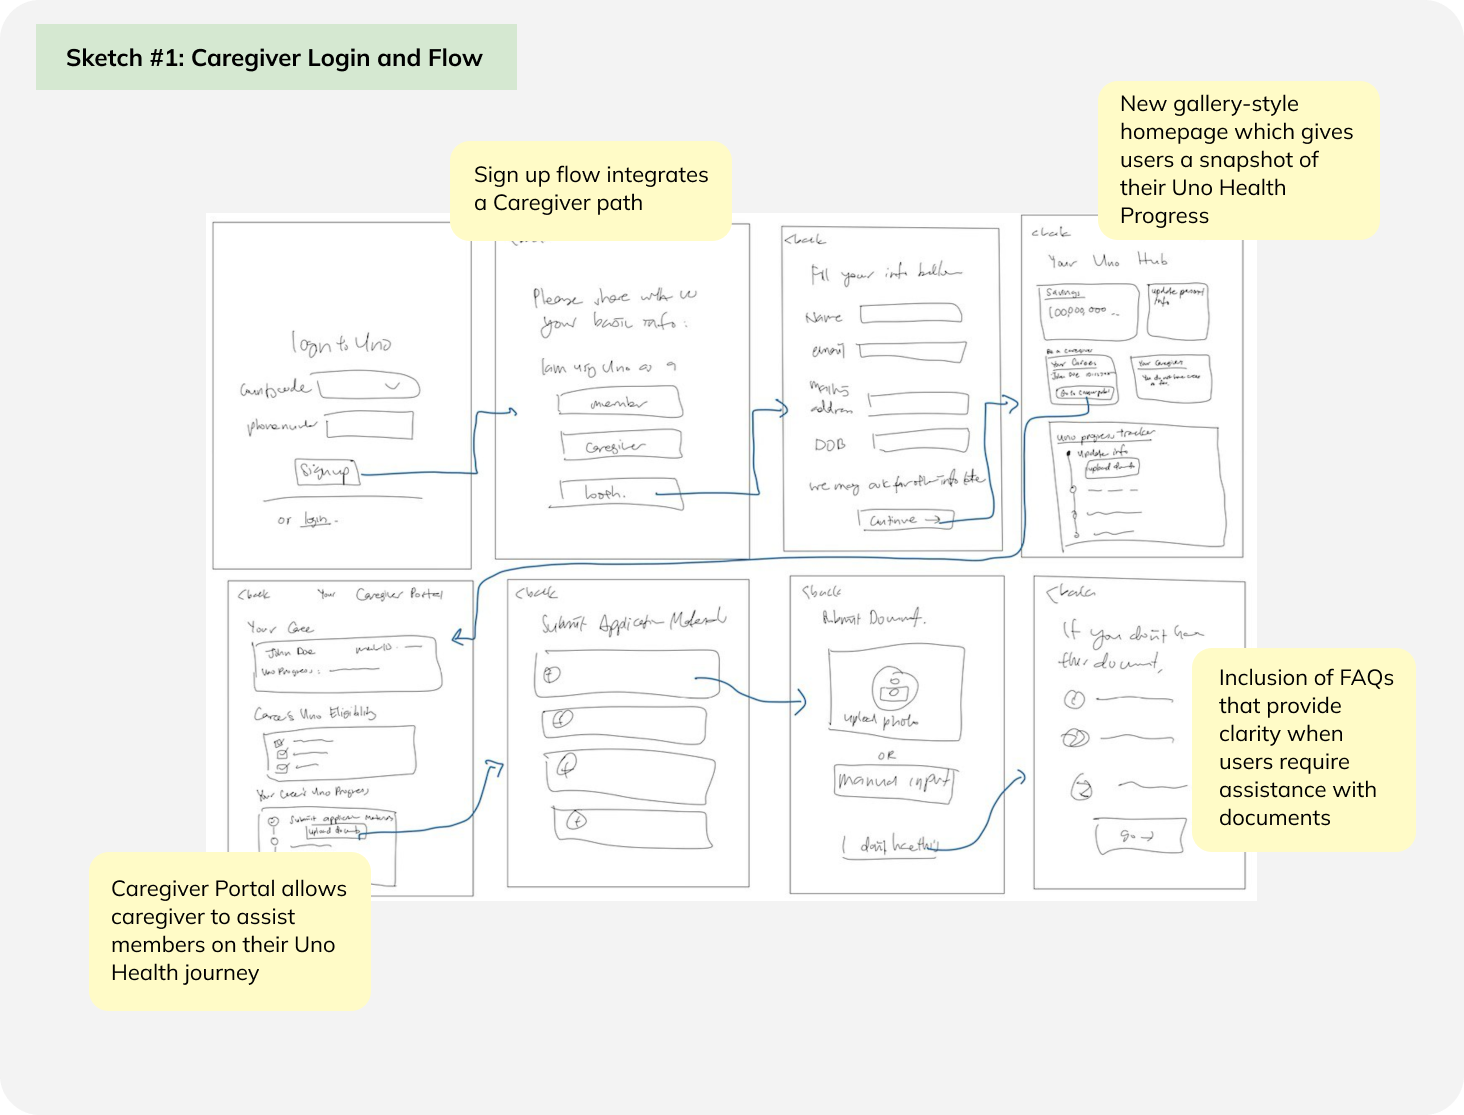 Sketch #1: Caregiver Login and Flow
New gallery-style
homepage which gives
users a snapshot of
their Uno Health
Progress
Sign up flow integrates
a Caregiver path
login to Uno
phone number
Sign up
or login.
Please share with us
your basic info:
I am using Uno as a
member
Caregiver
both.
<back
Fill your info below
Name
email
mailing
address
DOB
we may ask for other info later
Continue →
<back
Your Uno Hub
Savings
update personal
info
Your Caree
John Doe
Your Caregiver
uno progress tracker
update info
upload docs
<back Your Caregiver Portal
Your Caree
John Doe
Uno Progress:
Caree's Uno Eligibility
Your Caree's Uno Progress
Submit application materials
upload docs
<back
Submit Application Materials
<back
Submit Document.
upload photo
OR
manual input
I don't have this
<back
If you don't have
this document,
1
2
3
go →
Inclusion of FAQs
that provide
clarity when
users require
assistance with
documents
Caregiver Portal allows
caregiver to assist
members on their Uno
Health journey